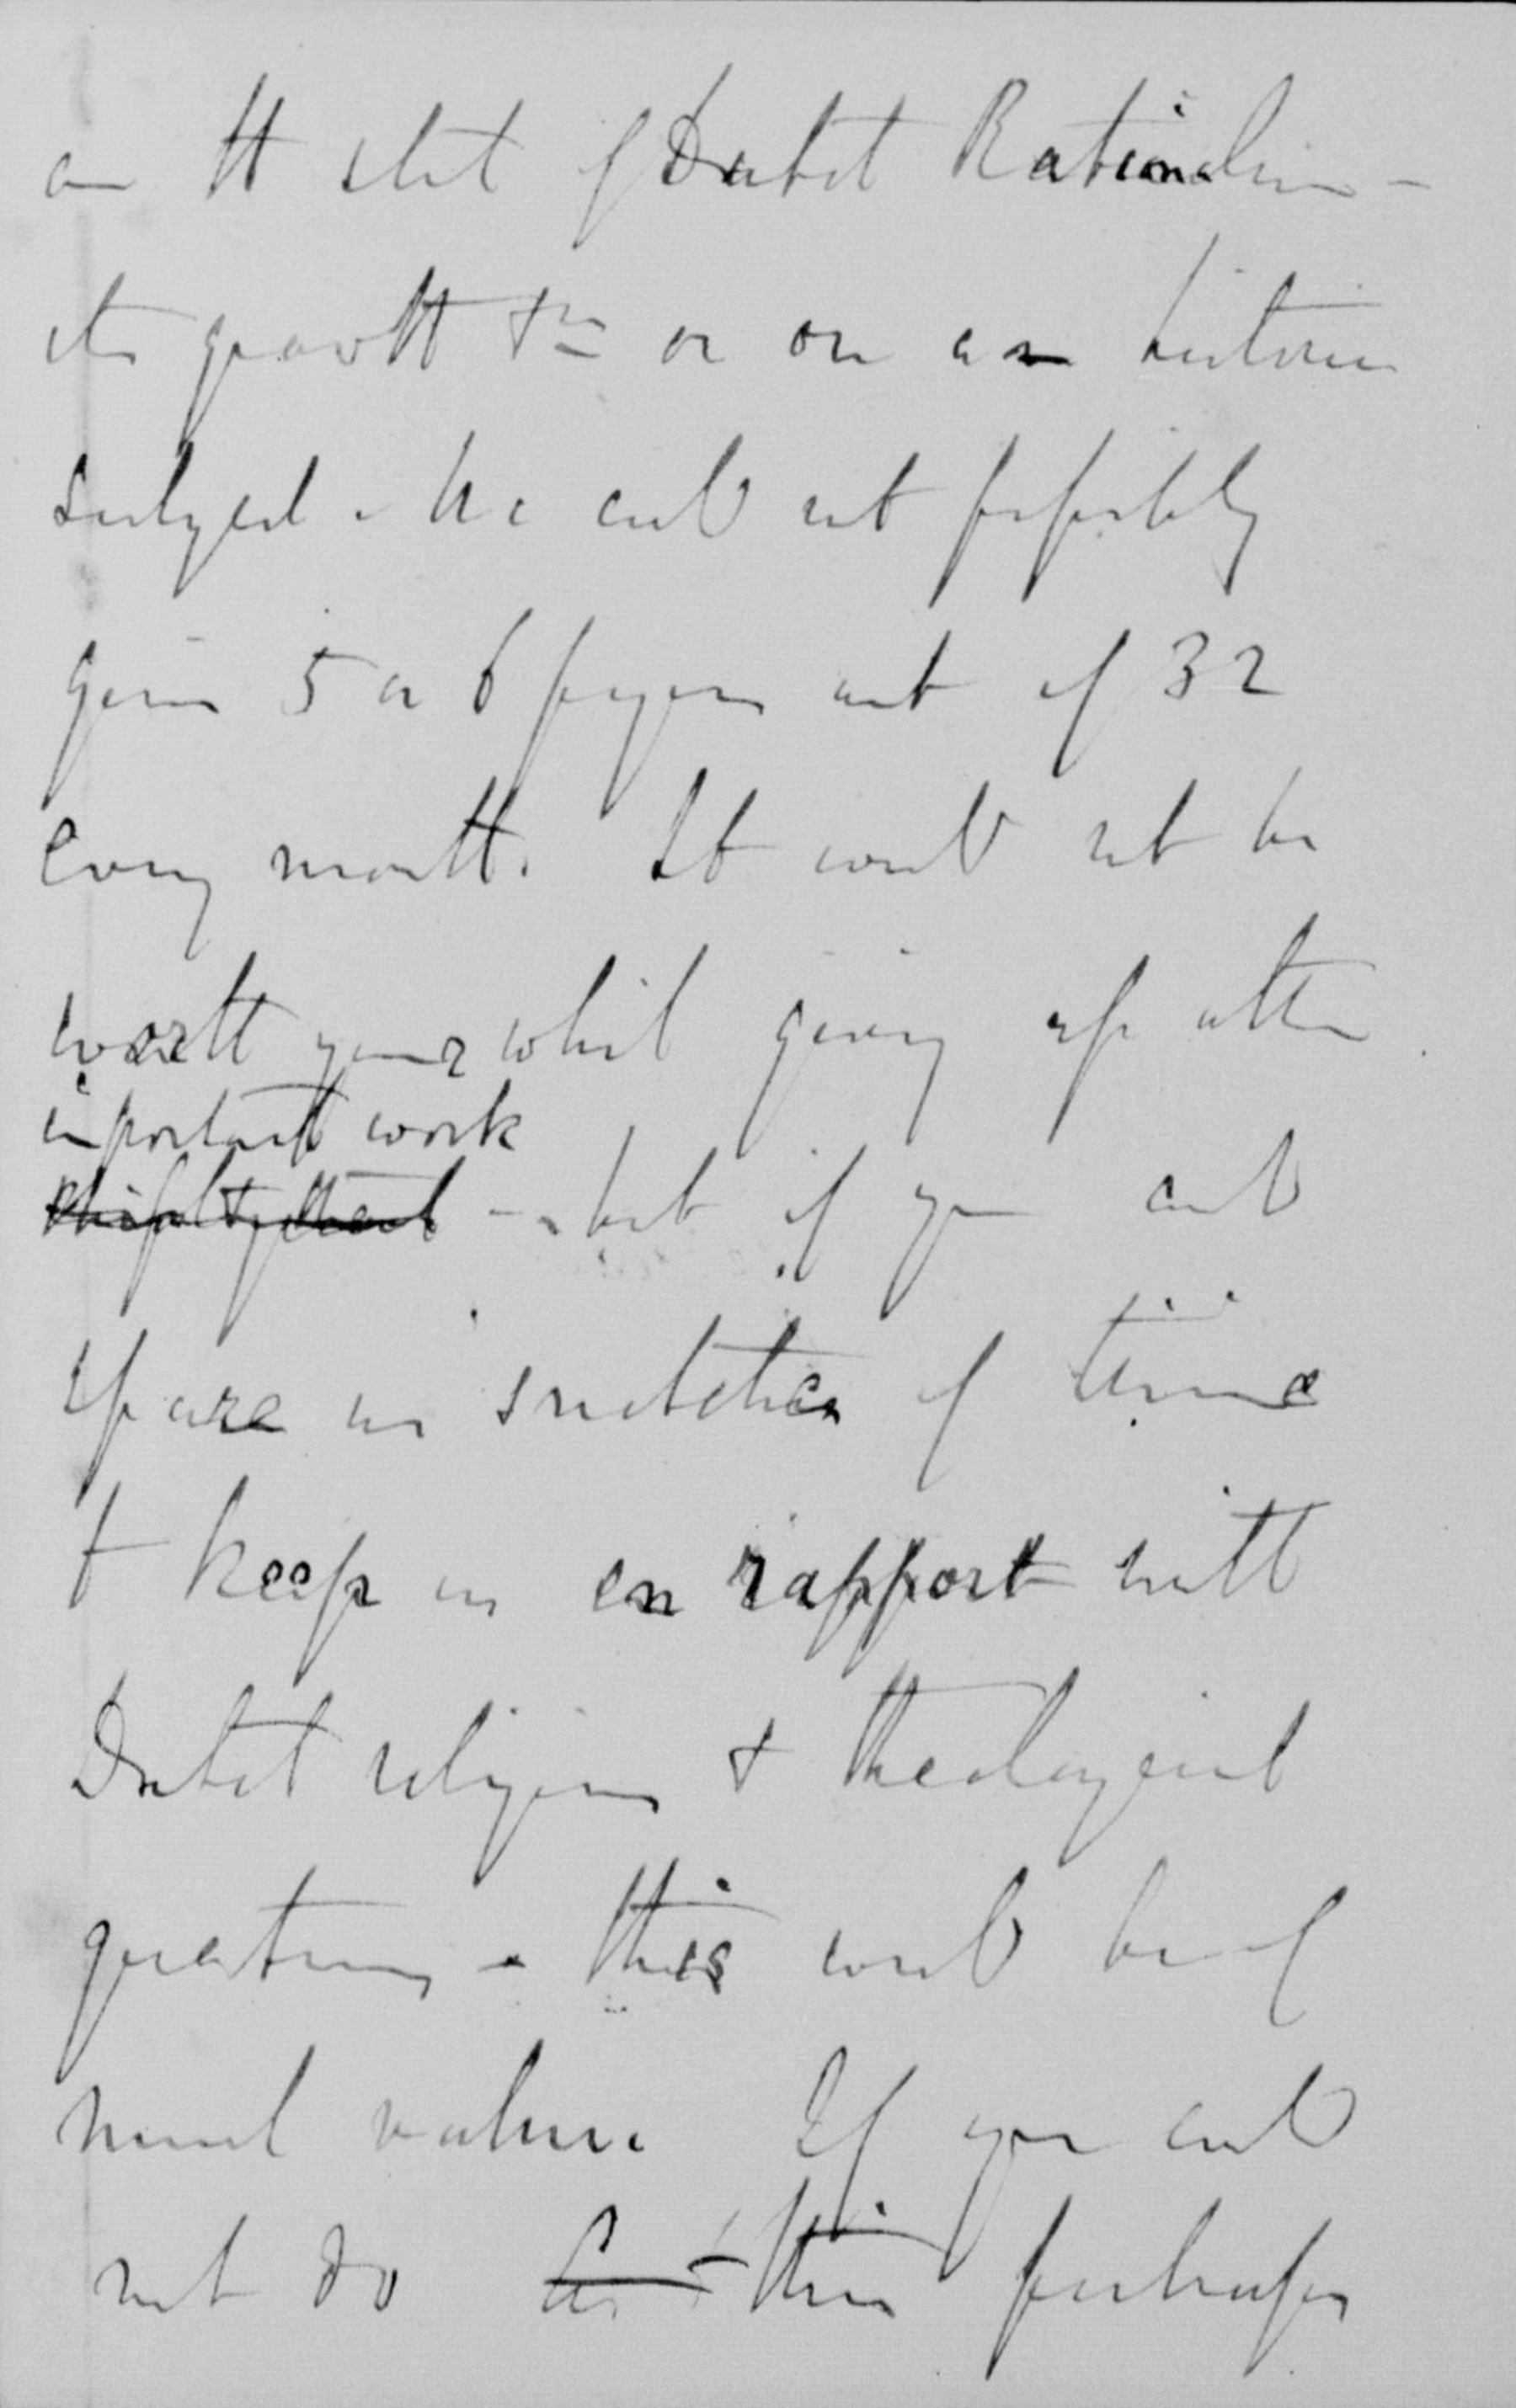 on the state of Dutch Rationalism -
its growth &c or on any historic
subject. We could not possibly
give 5 or 6 pages out of 32
every month. It would not be
worth your while giving up other
important work
- but if you could
spare us snatches of time
& keep us en rapport with
Dutch religious & theological
questions - this would be of
much value. If you could
not do this perhaps